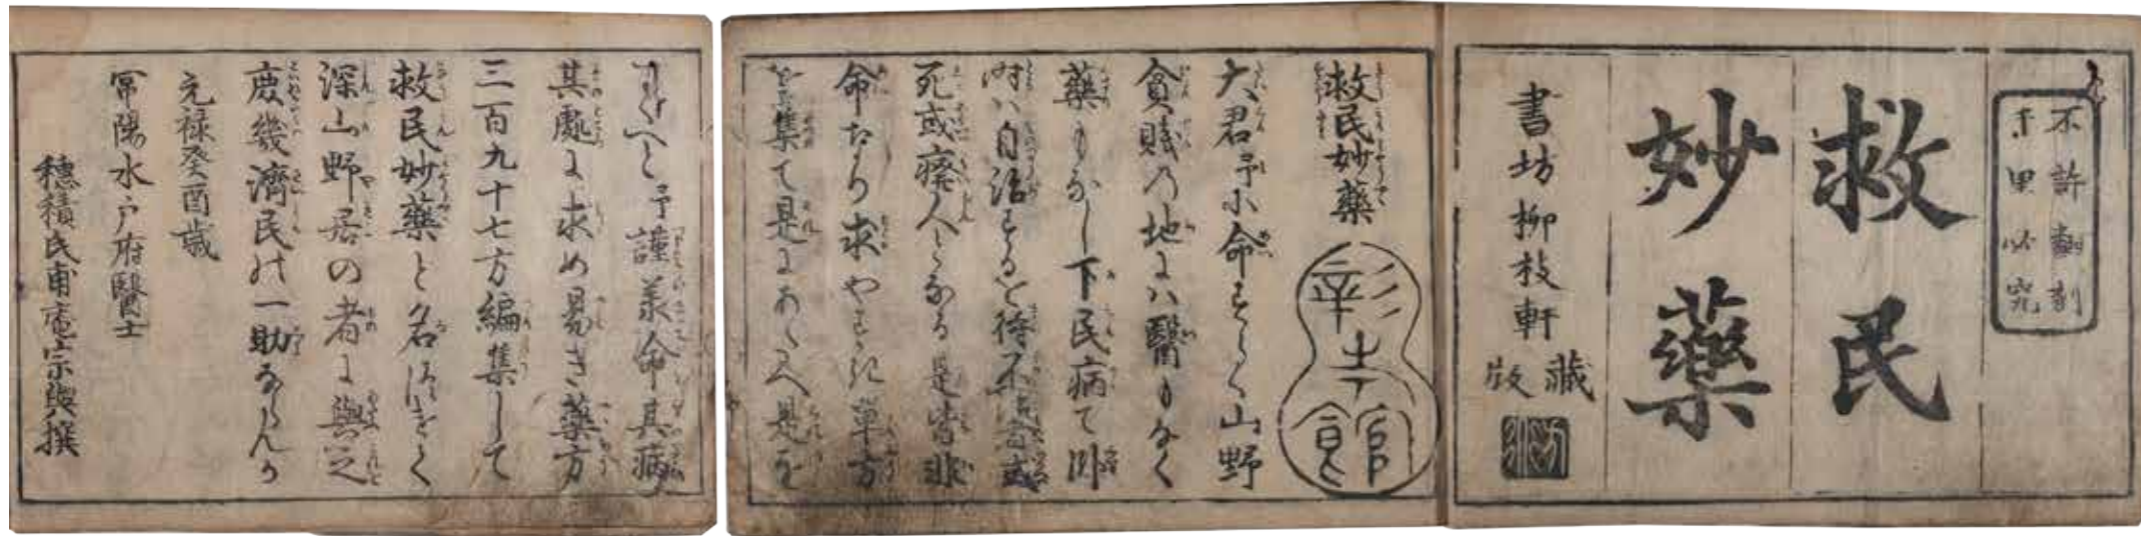 不許翻刻
千里必究
救民
妙藥
書坊柳枝軒藏版
救民妙藥
彰考館
大君予に命すらく山野
貧賤の地には醫もなく
藥もなし下民病て臥
時は自治するを待不治者或
死或癈人となる是皆非
命なり求やすき單方
を集て是にあたへ是を
すくへと予謹承命其病
其處に求め易き藥方
三百九十七方編集して
救民妙藥と名付をく
深山野居の者に與之
庶幾濟民の一助ならんか
元禄癸酉歳
常陽水戸府醫士
穗積氏甫庵宗與撰